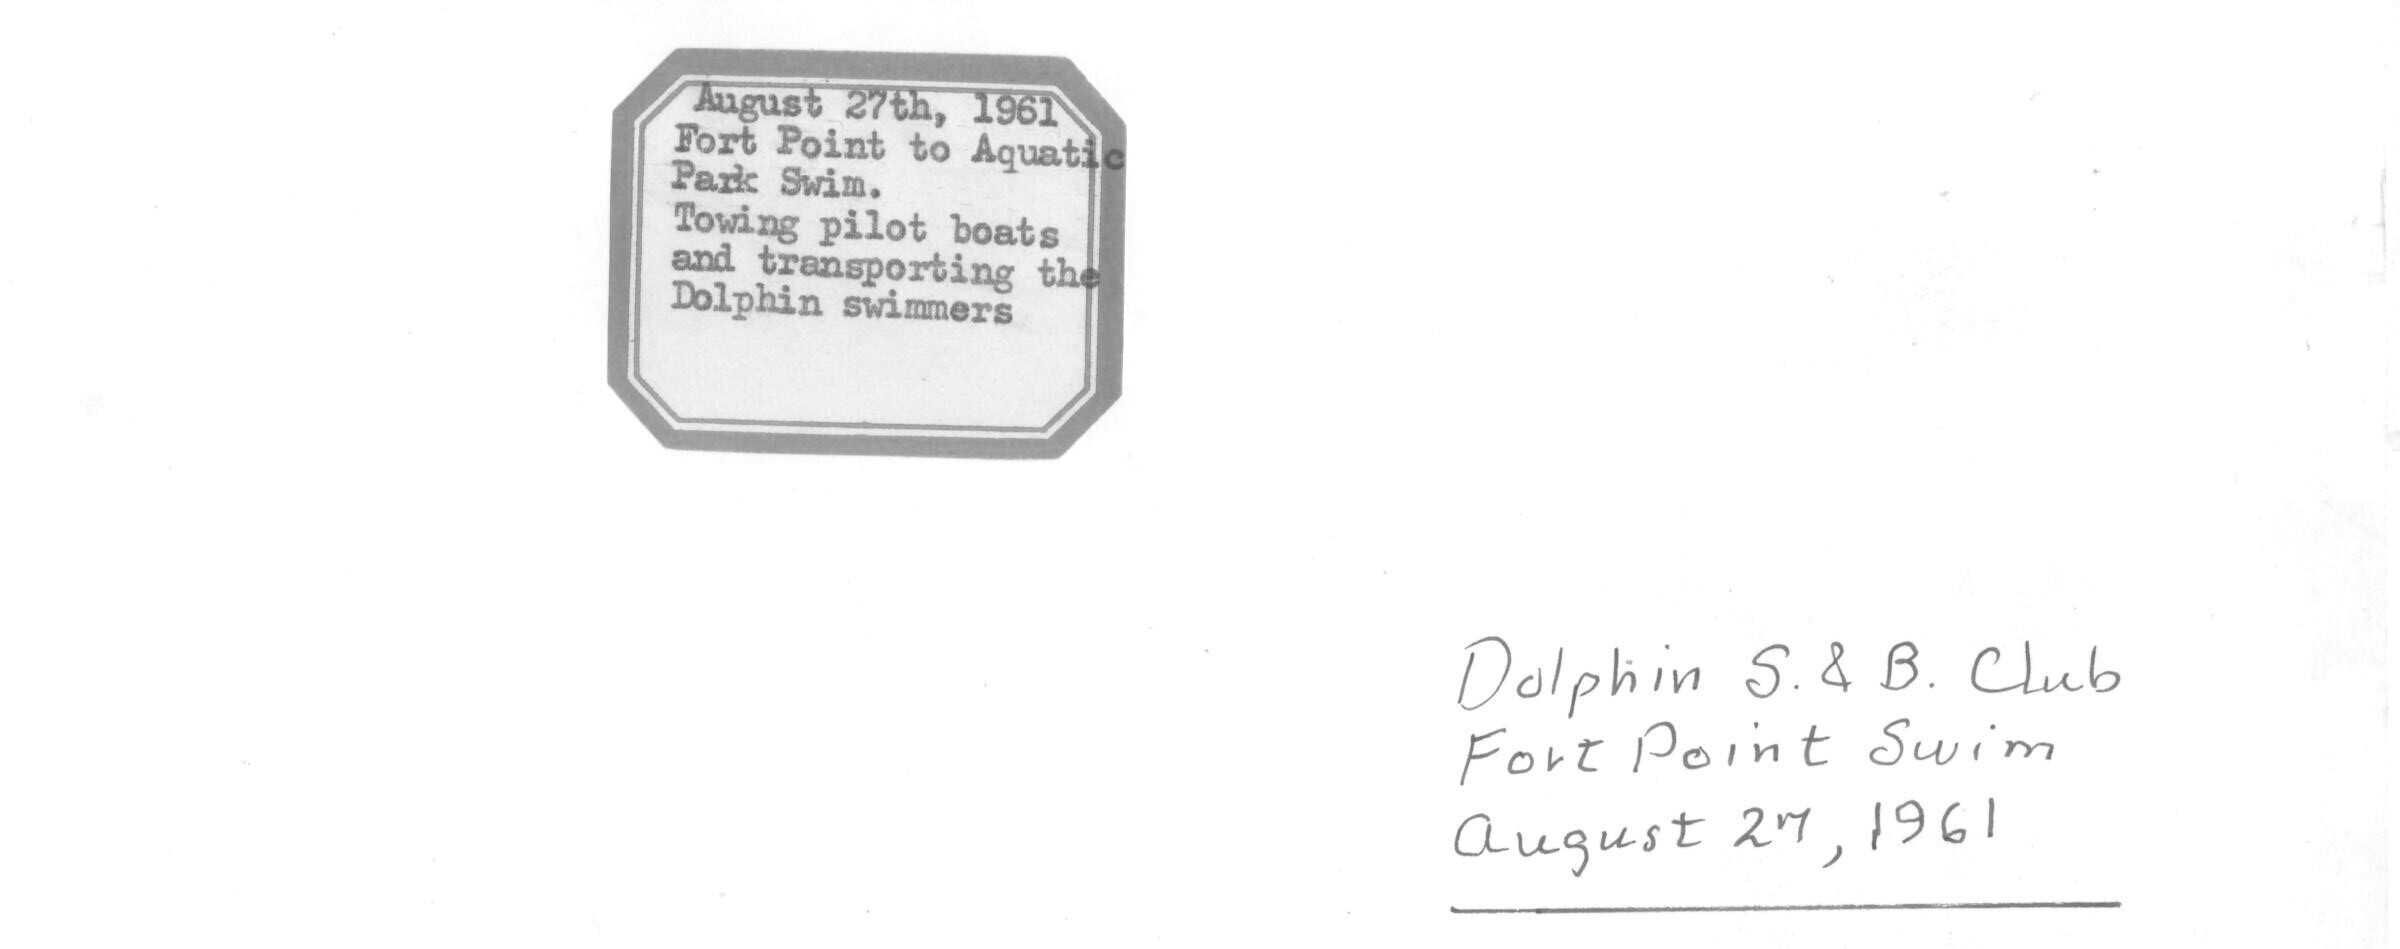 August 27th, 1961
Fort Point to Aquatic
Park Swim.
Towing pilot boats
and transporting the
Dolphin swimmers
Dolphin S. & B. Club
Fort Point Swim
August 27, 1961